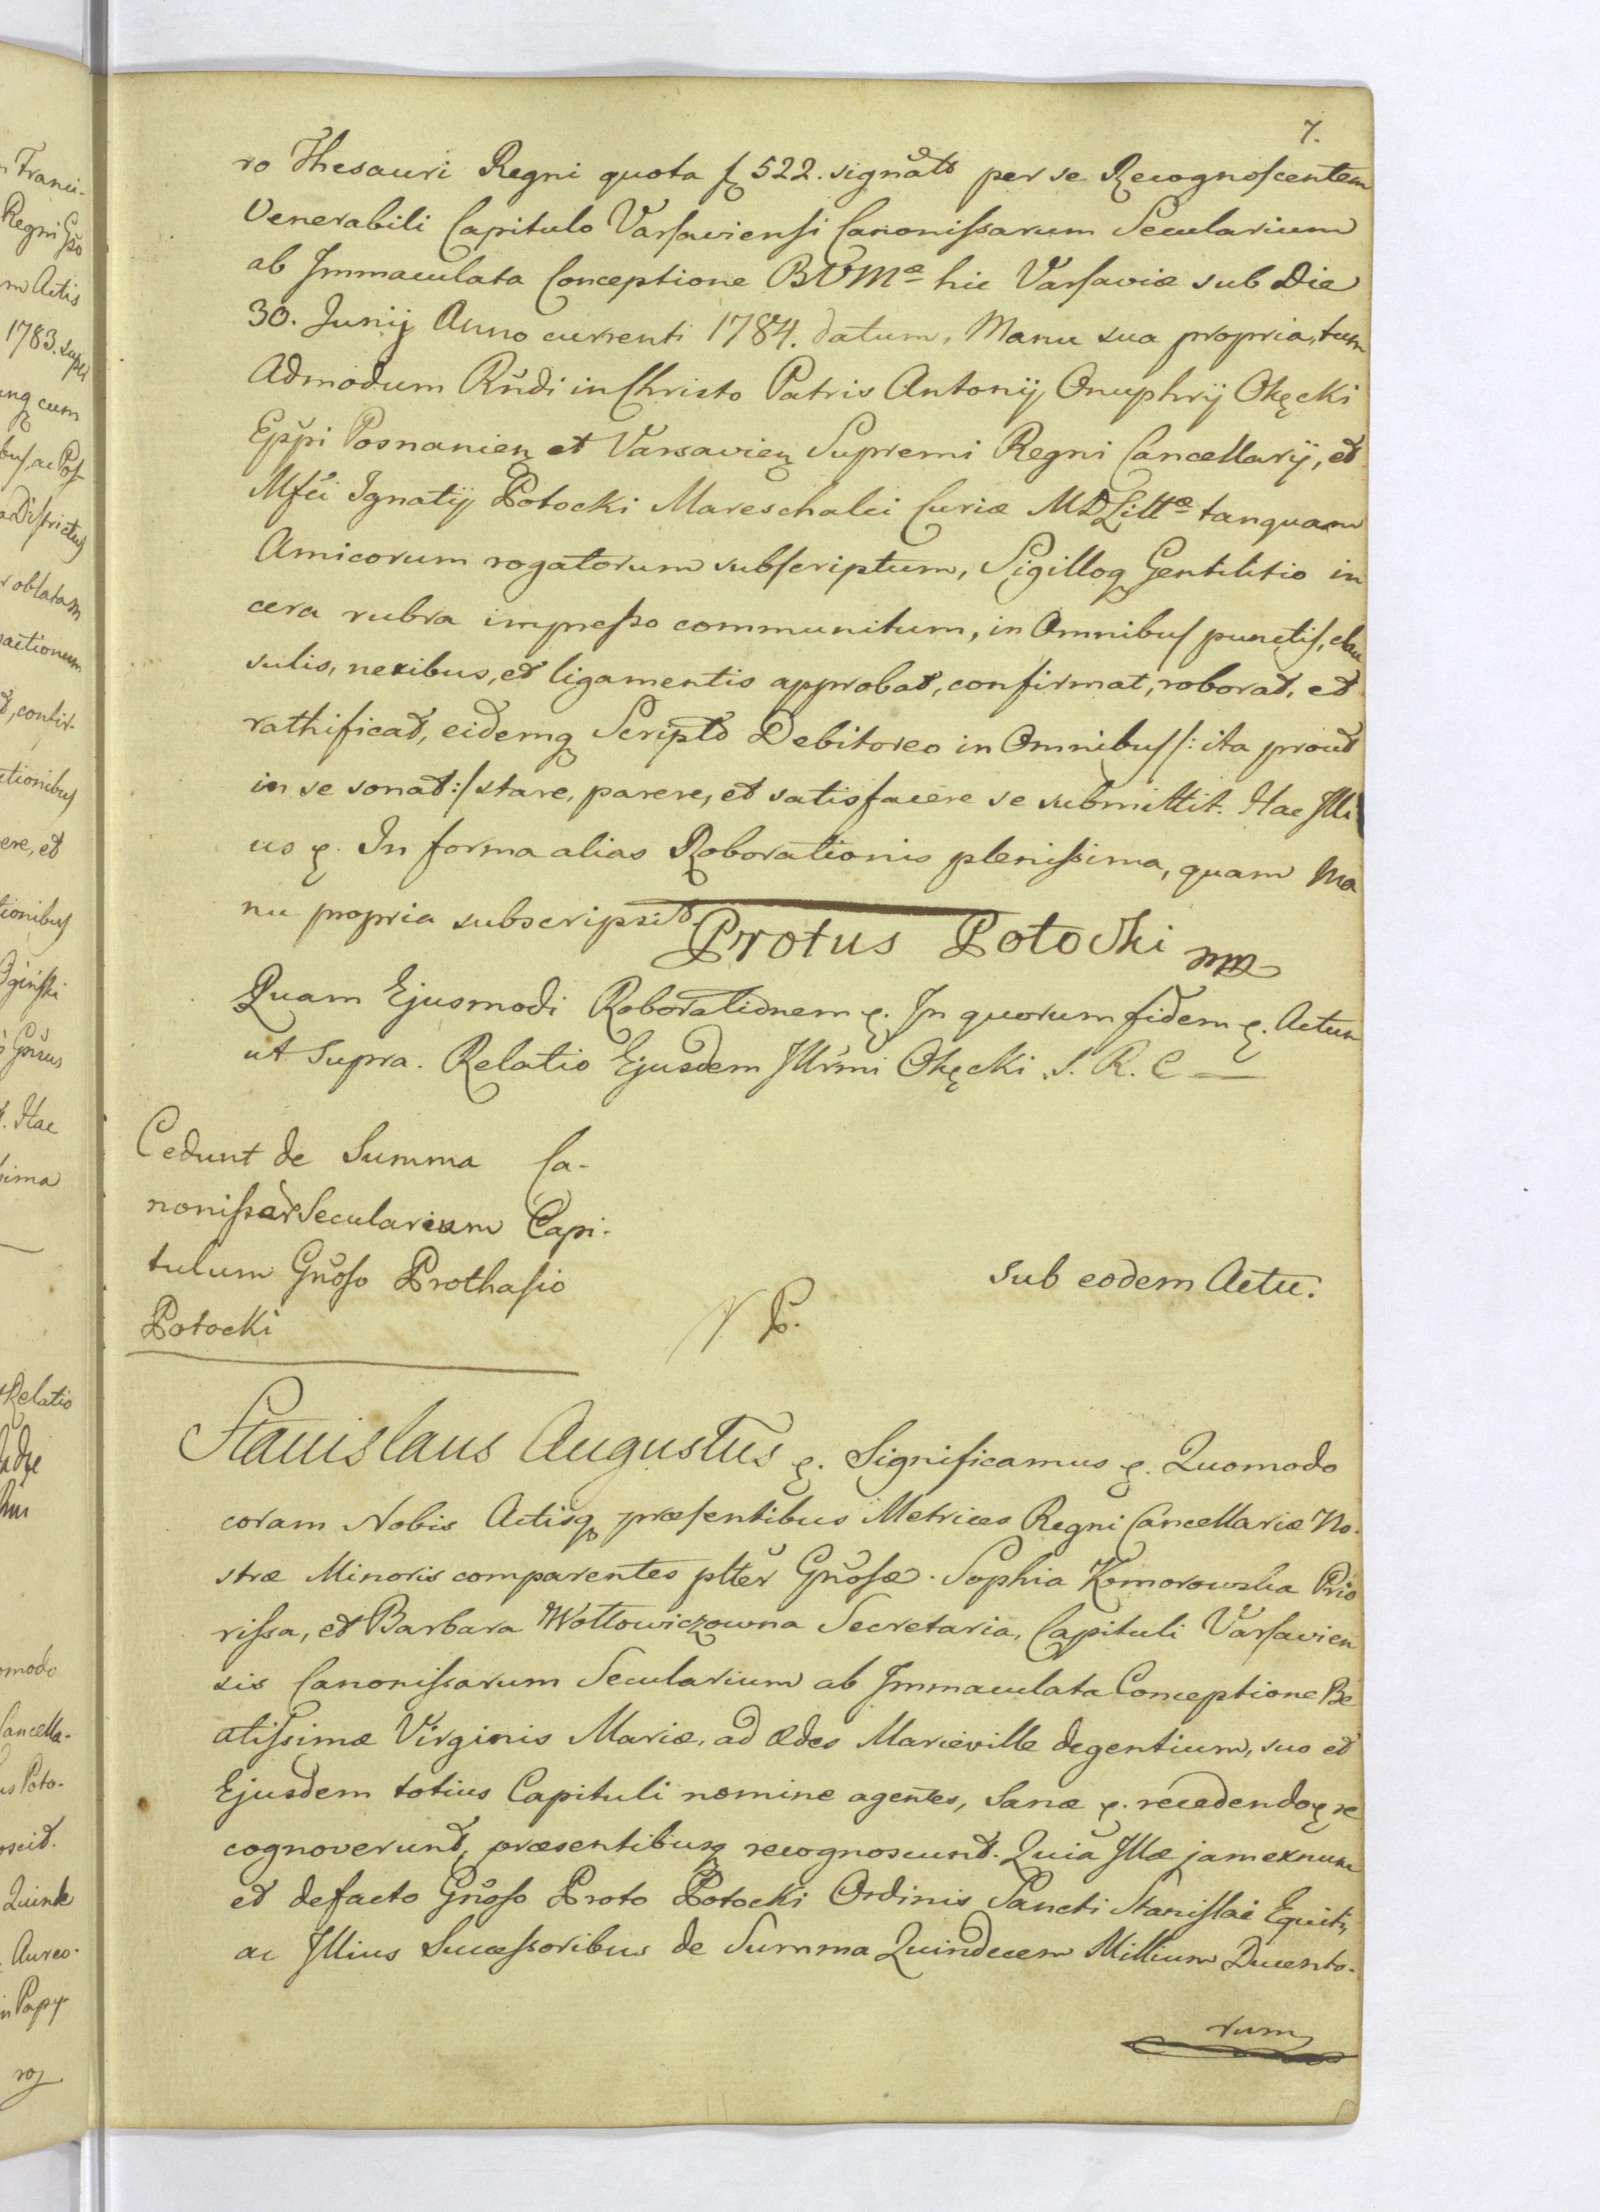 7.
ro Thesauri Regni quota ʄ 522. signato per se Recognoſcentem
Venerabili Capitulo Varſaviensi Canoniſsarum Secularium
ab Immaculata Conceptione BVMæ hic Varſaviæ sub Die
30. Junij Anno currenti 1784. datum, Manu sua propria, tum
Admodum Rñdi in Christo Patris Antonij Onuphrij Okęcki
Epp̃i Posnanieñ et Varsavieñ Supremi Regni Cancellarij, et
Mfći Ignatij Potocki Mareschalci Curiæ MDLittæ tanquam
Amicorum rogatorum subſcriptum, Sigilloq Gentilitio in
cera rubra impreſso communitum, in Omnibuſ punctiſ, clau
sulis, nexibus, et ligamentis approbat, confirmat, roborat, et
rathificat, eidemq Scripto Debitoreo in Omnibuſ /: ita prout
in se sonat :/ stare, parere, et satisfacere se submittit. Hac Illi
us ę. In forma alias Roborationis pleniſsima, quam Ma
nu propria subscripsit.
Protus Potocki mp
Quam Ejusmodi Roborationem ę. In quorum fidem ę. Actum
ut Supra. Relatio Ejusdem Illr̃mi Okęcki S. R. C
Cedunt de Summa Ca-
noniſsar̃ Secularium Capi-
tulum Gñoſo Prothaſio
Potocki
N P.
Sub eodem Actu.
Stanislaus Augustus ę. Significamus ę. Quomodo
coram Nobis Actisq præſentibus Metrices Regni Cancellariæ No-
stræ Minoris comparentes pltẽr Gñoſæ. Sophia Komorowska Prio
riſsa, et Barbara Wołłowiczowna Secretaria, Capituli Varſavien
sis Canoniſsarum Secularium ab Immaculata Conceptione Be
atiſsimæ Virginis Mariæ, ad Ædes Marieville degentium, suo et
Ejusdem totius Capituli nomine agentes, Sanæ ę. recedendo ę re
cognoverunt, præsentibusq recognoscunt. Quia Illæ jam exnunc
et defacto Gñoſo Proto Potocki Ordinis Sancti Staniſlai Equiti,
ac Illius Succeſsoribus de Summa Quindecem Millium Ducento-
rum